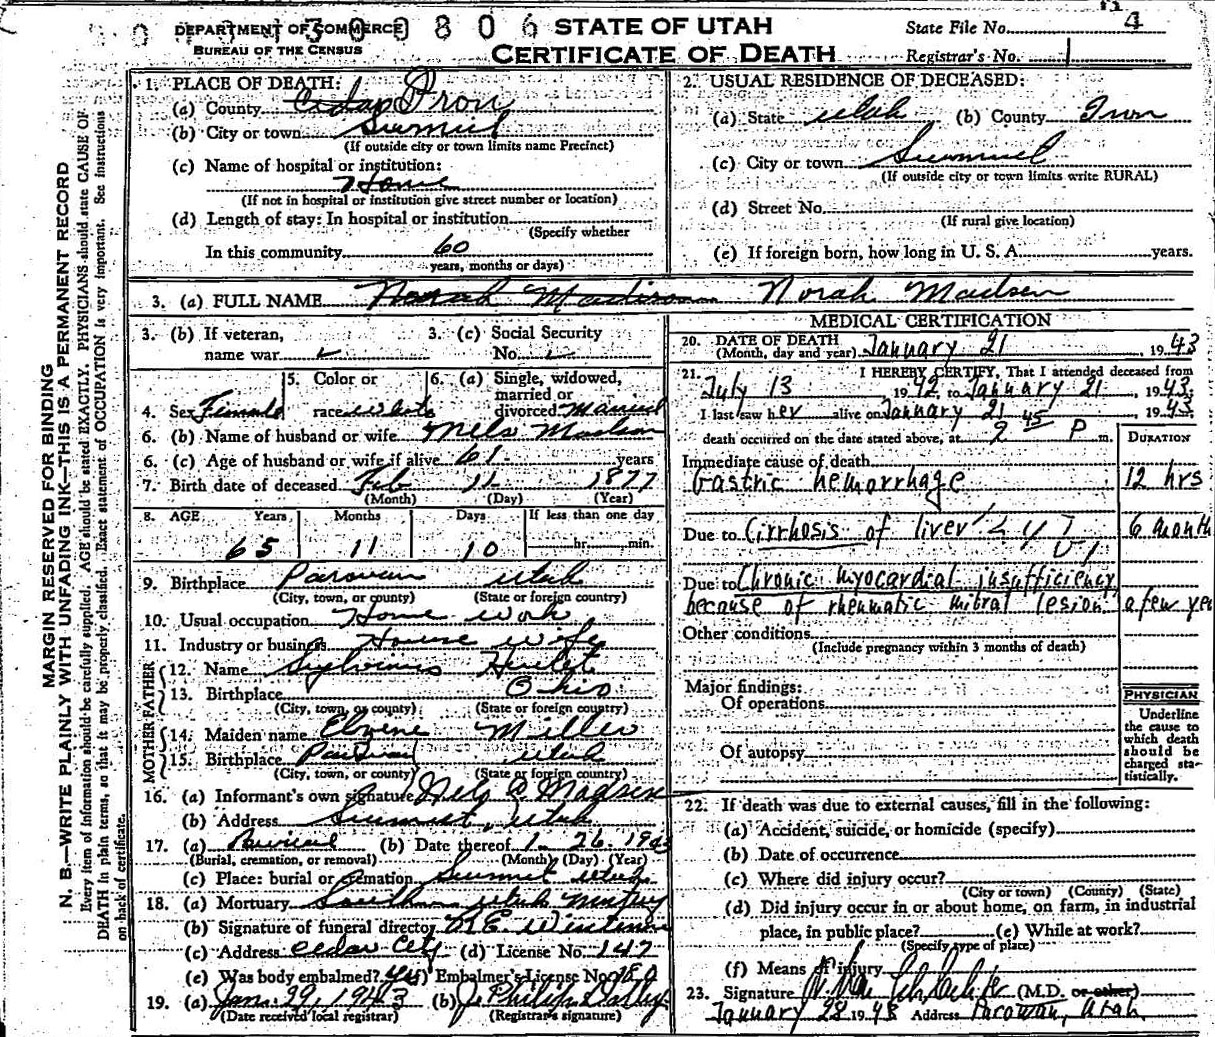 DEPARTMENT OF COMMERCE
BUREAU OF THE CENSUS
STATE OF UTAH
CERTIFICATE OF DEATH
State File No. 4
Registrar's No. 1
MARGIN RESERVED FOR BINDING
N. B.—WRITE PLAINLY WITH UNFADING INK—THIS IS A PERMANENT RECORD
Every item of information should be carefully supplied. AGE should be stated EXACTLY. PHYSICIANS should state CAUSE OF
DEATH in plain terms, so that it may be properly classified. Exact statement of OCCUPATION is very important. See instructions
on back of certificate.
1. PLACE OF DEATH:
(a) County Cedar Iron
(b) City or town Summit
(If outside city or town limits name Precinct)
(c) Name of hospital or institution:
Home
(If not in hospital or institution give street number or location)
(d) Length of stay: In hospital or institution
(Specify whether
In this community 60
years, months or days)
2. USUAL RESIDENCE OF DECEASED:
(a) State Utah (b) County Iron
(c) City or town Summit
(If outside city or town limits write RURAL)
(d) Street No.
(If rural give location)
(e) If foreign born, how long in U. S. A. years.
3. (a) FULL NAME Norah Madison Norah Madsen
3. (b) If veteran,
name war
3. (c) Social Security
No.
4. Sex Female
5. Color or
race White
6. (a) Single, widowed,
married or
divorced Married
6. (b) Name of husband or wife Nels Madsen
6. (c) Age of husband or wife if alive 61 years
7. Birth date of deceased Feb 11 1877
(Month) (Day) (Year)
8. AGE Years Months Days If less than one day
65 11 10 hr. min.
9. Birthplace Parowan Utah
(City, town, or county) (State or foreign country)
10. Usual occupation Home work
11. Industry or business House wife
FATHER
12. Name Sylvinus Hulet
13. Birthplace Ohio
(City, town, or county) (State or foreign country)
MOTHER
14. Maiden name Miller
15. Birthplace Parowan Utah
(City, town, or county) (State or foreign country)
16. (a) Informant's own signature Nels A. Madsen
(b) Address Summit, Utah
17. (a) Burial (b) Date thereof 1. 26. 1943
(Burial, cremation, or removal) (Month) (Day) (Year)
(c) Place: burial or cremation Summit Utah
18. (a) Mortuary Southern Utah Mortuary
(b) Signature of funeral director
(c) Address Cedar City (d) License No. 147
(e) Was body embalmed? Yes Embalmer's License No. 180
19. (a) Jan. 29, 1943 (b) J. Philip Dalley
(Date received local registrar) (Registrar's signature)
MEDICAL CERTIFICATION
20. DATE OF DEATH
(Month, day and year) January 21, 1943
21. I HEREBY CERTIFY, That I attended deceased from
July 13, 1942, to January 21, 1943.
I last saw her alive on January 21, 1943.
death occurred on the date stated above, at 9 45 P m.
DURATION
Immediate cause of death
Gastric hemorrhage 12 hrs
Due to Cirrhosis of liver 6 month
Due to Chronic myocardial insufficiency
because of rheumatic mitral lesion a few ye
Other conditions
(Include pregnancy within 3 months of death)
Major findings:
Of operations
Of autopsy
PHYSICIAN
Underline
the cause to
which death
should be
charged sta-
tistically.
22. If death was due to external causes, fill in the following:
(a) Accident, suicide, or homicide (specify)
(b) Date of occurrence
(c) Where did injury occur?
(City or town) (County) (State)
(d) Did injury occur in or about home, on farm, in industrial
place, in public place? (e) While at work?
(Specify type of place)
(f) Means of injury
23. Signature (M.D. or other)
January 28 1943 Address Parowan, Utah.